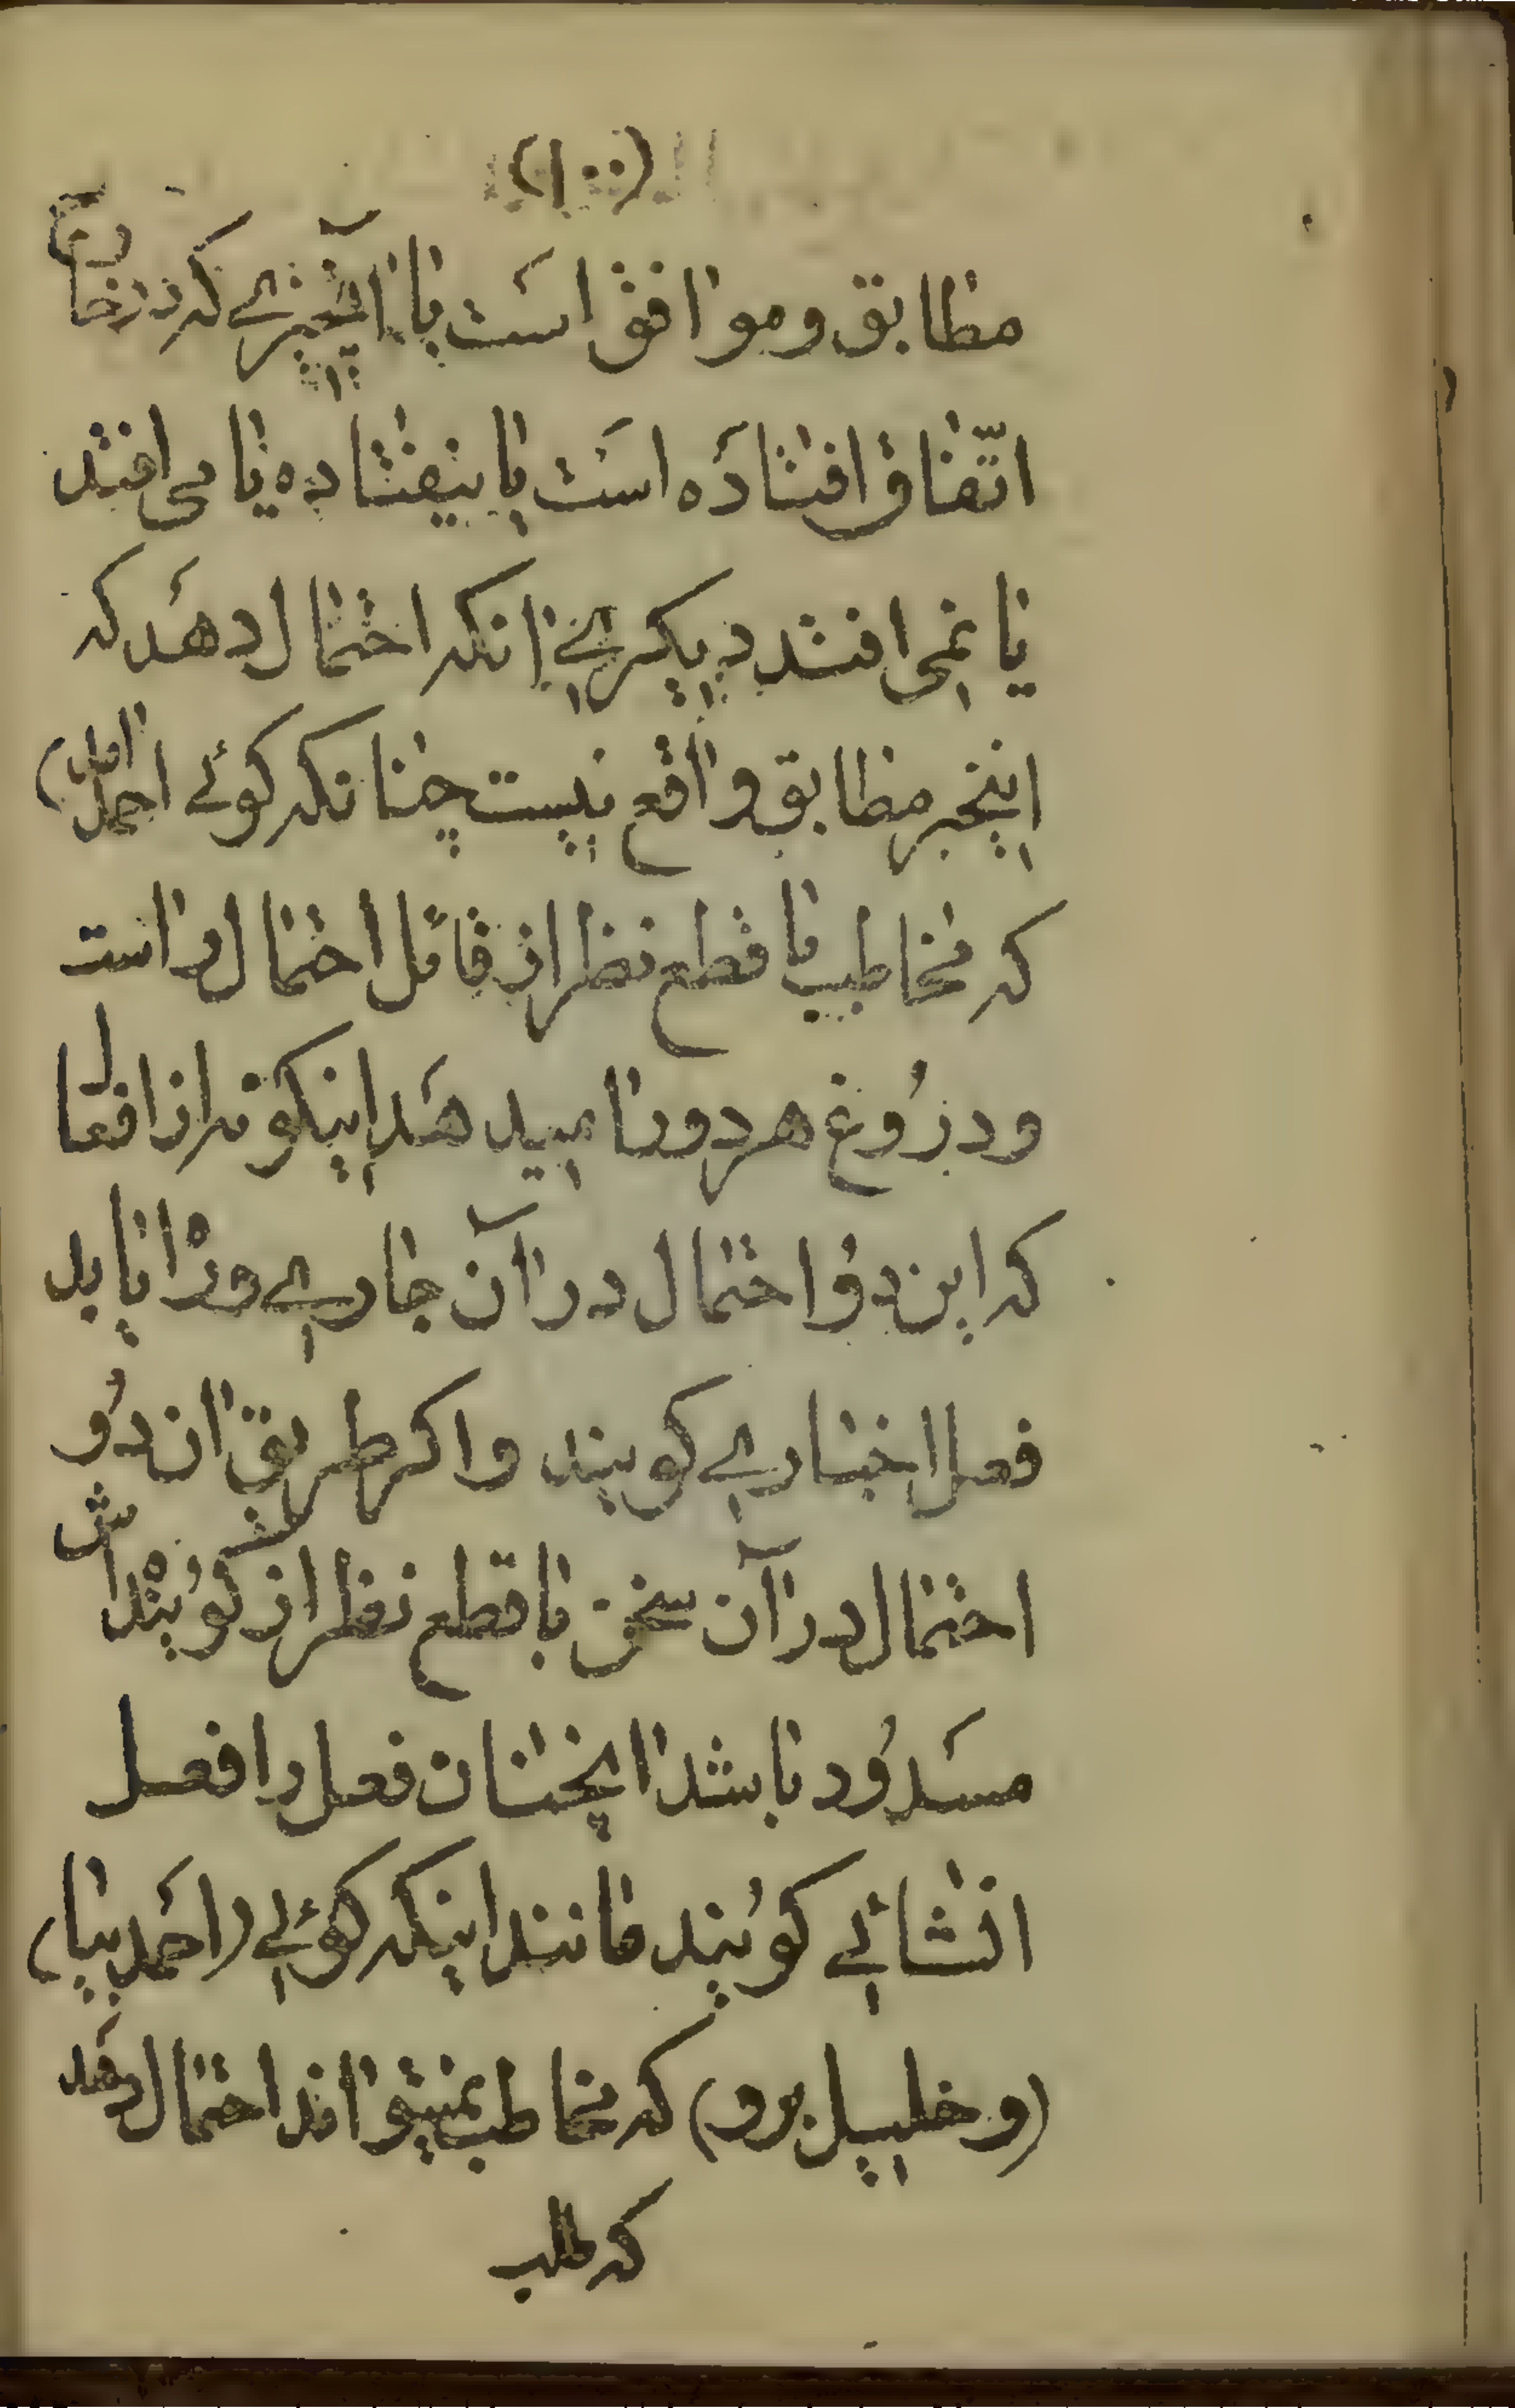 (۱۰۰)
مطابق و موافق است با آنچیزی که در خارج
اتّفاق افتاده است یا نیفتاده یا می افتد
یا نمی افتد دیگری آنکه احتمال دهد که
اینخبر مطابق واقع نیست چنانکه گوئی (احمد آمد)
که مخاطب با قطع نظر از قائل احتمال راست
و دروغ هر دو را میدهد اینگونه از افعال
که این دو احتمال در آن جاری و روا باید
فعل اخباری گویند و اگر طریق آن دو
احتمال در آن سخن با قطع نظر از گوینده‌اش
مسدود باشد اینچنان فعل را فعل
انشائی گویند مانند اینکه گوئی (احمد بیا)
(و خلیل برو) که مخاطب نمیتواند احتمال دهد
که طلب